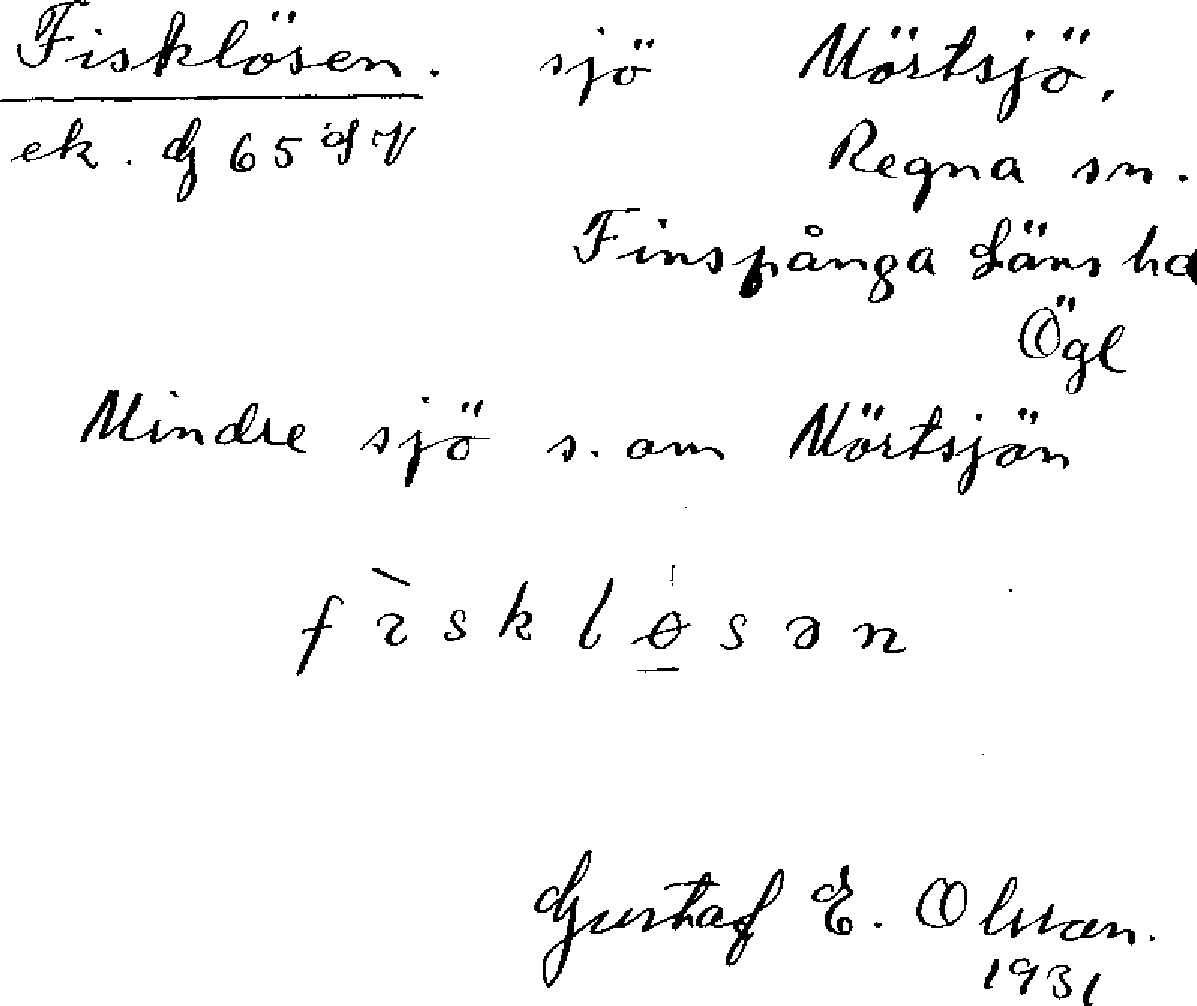 Fisklösen. sjö Mörtsjö,
ek. G 65 Regna sn.
Finspånga Läns hd
Ögl
Mindre sjö s. om Mörtsjön
fìskløsən
Gustaf E. Olsson.
1931